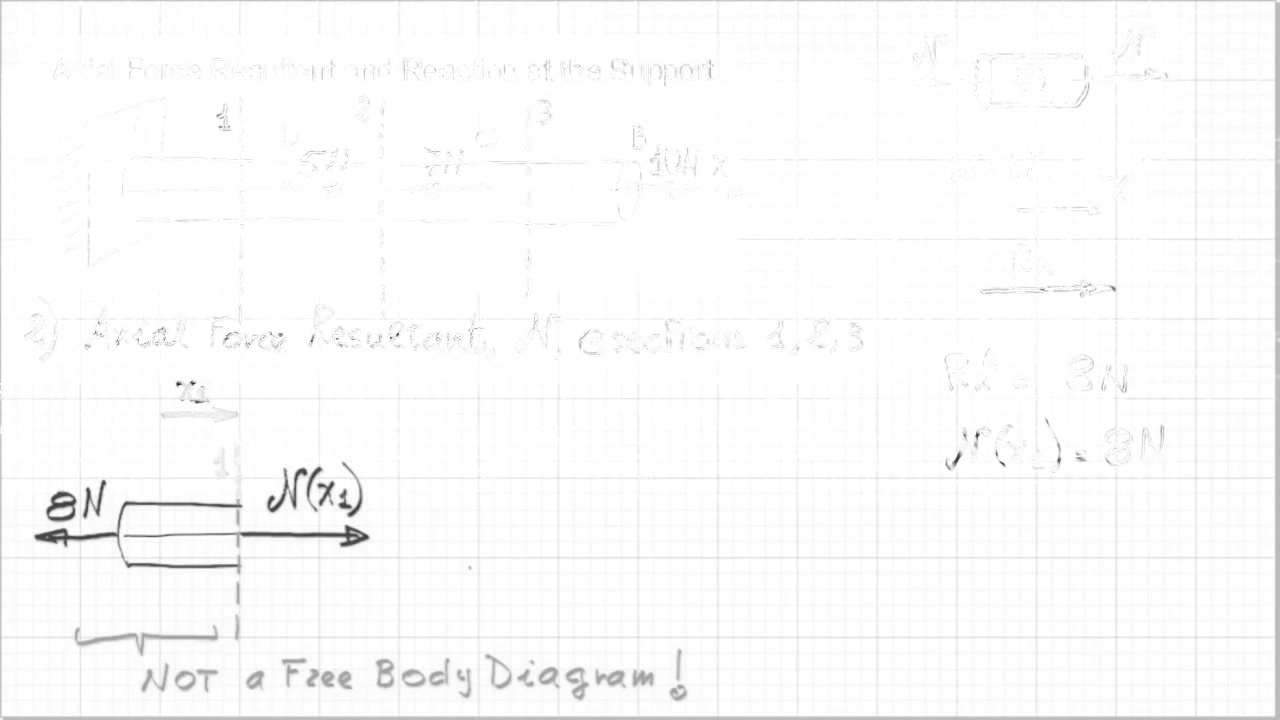 Axial Force Resultant and Reaction at the Support
N N
1 2 3
D C B
5N 7N 10N x
x
2) Axial Force Resultant, N, @sections 1,2,3
x1
1
8N N(x1)
N(x1) = 8N
NOT a Free Body Diagram!